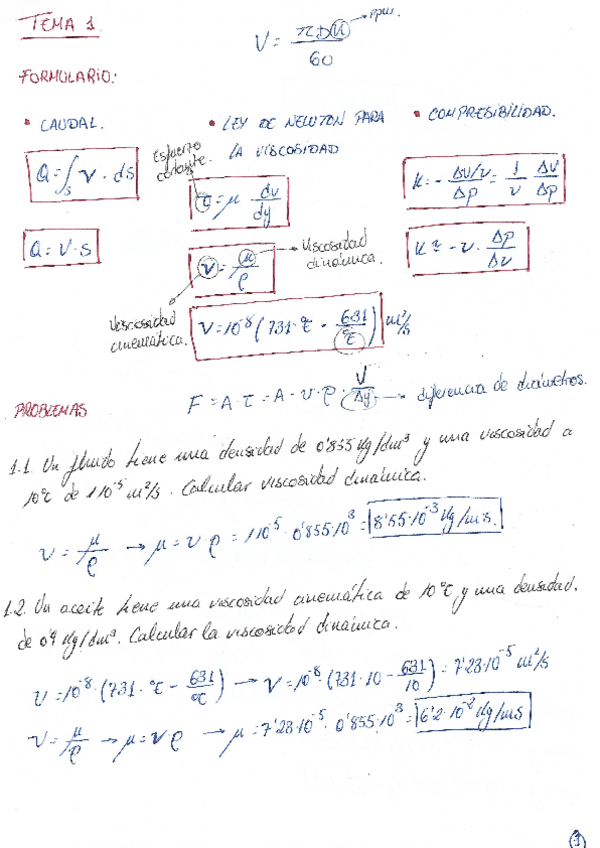 TEMA 1
V = πDN/60 → rpm.
FORMULARIO:
• CAUDAL.
Q = ∫s v · ds
Q = V · S
• LEY DE NEWTON PARA
LA VISCOSIDAD
Esfuerzo
cortante.
τ = μ · dv/dy
ν = μ/ρ
Viscosidad
dinámica.
Viscosidad
cinemática.
ν = 10⁻⁸ (731 · ºE - 631/ºE) m²/s
• COMPRESIBILIDAD.
K = - ΔV/V / Δp = 1/V ΔV/Δp
K = - V · Δp/Δv
F = A · τ = A · ν · ρ · V/Δy → diferencia de diámetros.
PROBLEMAS
1.1. Un fluido tiene una densidad de 0'855 Kg/dm³ y una viscosidad a
10ºC de 1·10⁻⁵ m²/s. Calcular viscosidad dinámica.
ν = μ/ρ → μ = ν · ρ = 1·10⁻⁵ · 0'855·10³ = 8'55·10⁻³ Kg/m·s.
1.2. Un aceite tiene una viscosidad cinemática de 10ºE y una densidad.
de 0'9 Kg/dm³. Calcular la viscosidad dinámica.
ν = 10⁻⁸ · (731 · ºE - 631/ºE) → ν = 10⁻⁸ · (731·10 - 631/10) = 7'23·10⁻⁵ m²/s
ν = μ/ρ → μ = ν ρ → μ = 7'23·10⁻⁵ · 0'855·10³ = 6'2·10⁻² Kg/ms
1